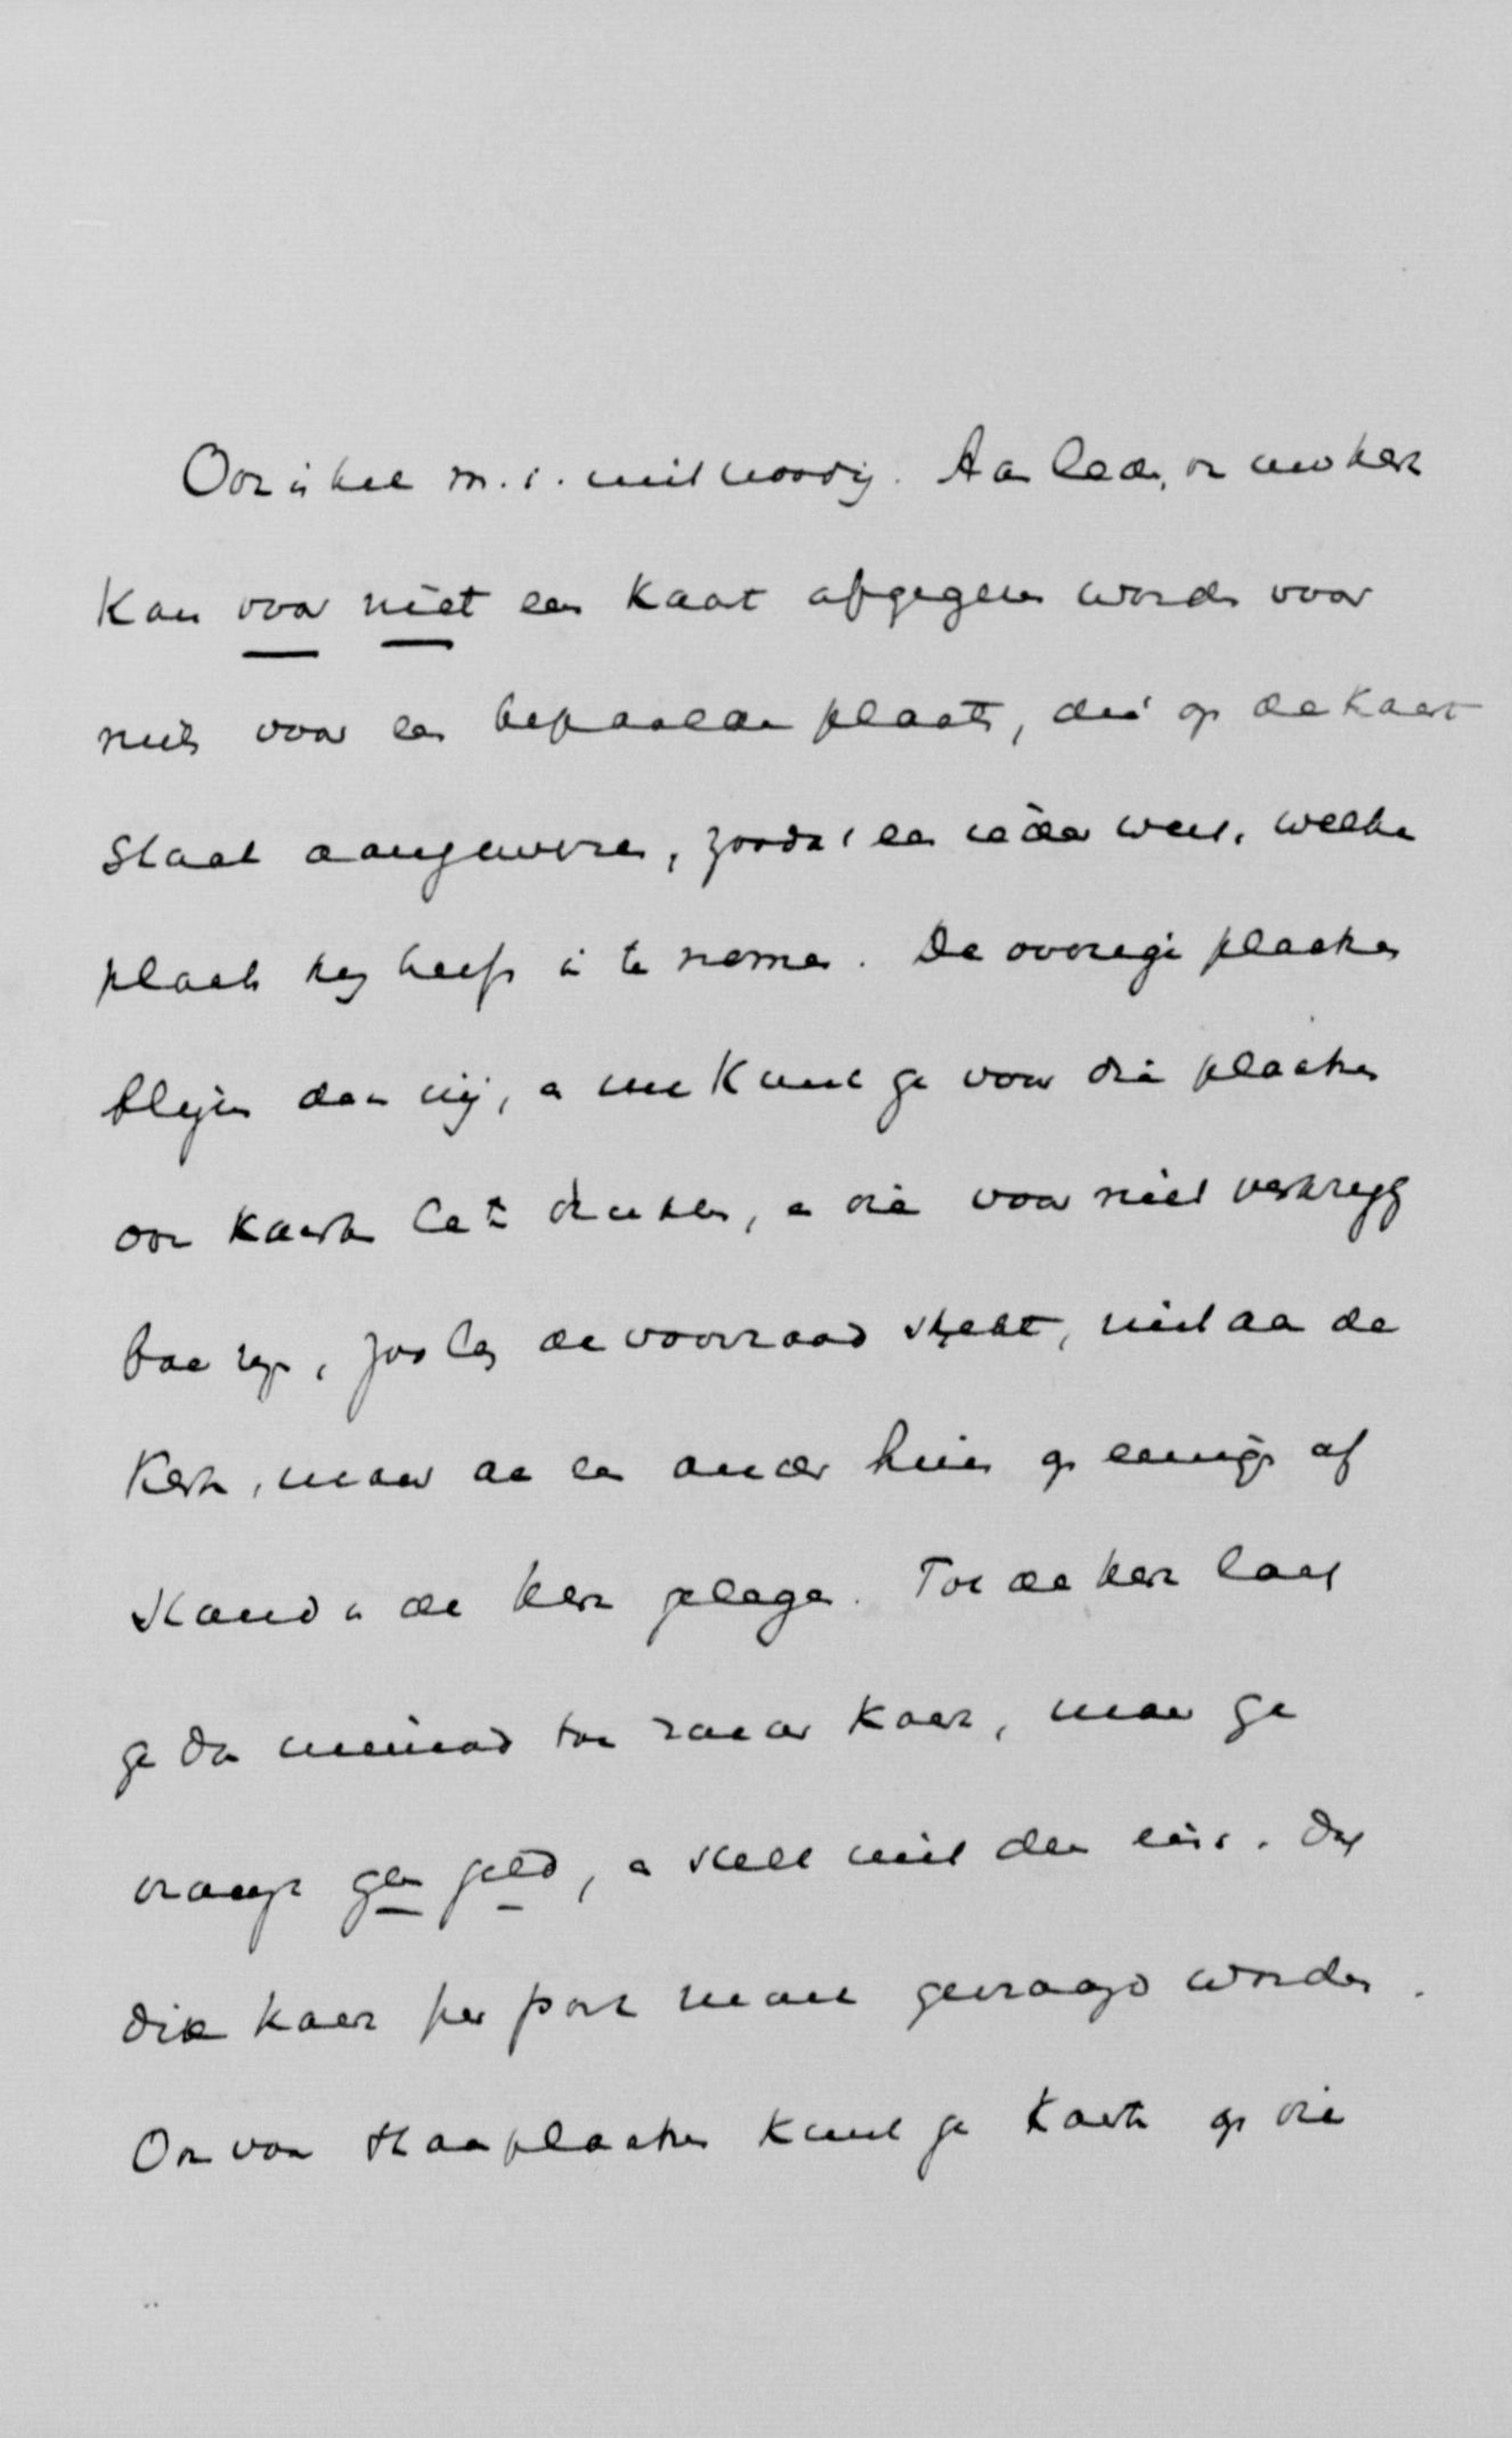 Ook is het m.i. niet noodig. Aan leden van uw kerk
kan voor niet een kaart afgegeven worden voor
niets voor een bepaalde plaats, die op de kaart
staat aangewezen, zoodat een ieder weet, welke
plaats hij heeft in te nemen. De overige plaatsen
blijven dan vrij, en nu kunt ge voor die plaatsen
ook kaarten laten drukken, en die voor niet verkrijg
baar, zoolang de voorraad strekt, niet aan de
Kerk, maar aan een ander huis op eenigen af
stand van de kerk plegen. Tot de kerk laat
ge dan niemand toe zonder kaart, maar ge
vraagt geen geld, en stelt niet den eisch, dat
die kaart per post moet gevraagd worden.
Ook voor staanplaatsen kunt ge kaarten op die